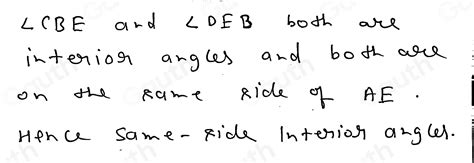 ∠CBE and ∠DEB both are
interior angles and both are
on the same side of AE.
Hence same-side Interior angles.